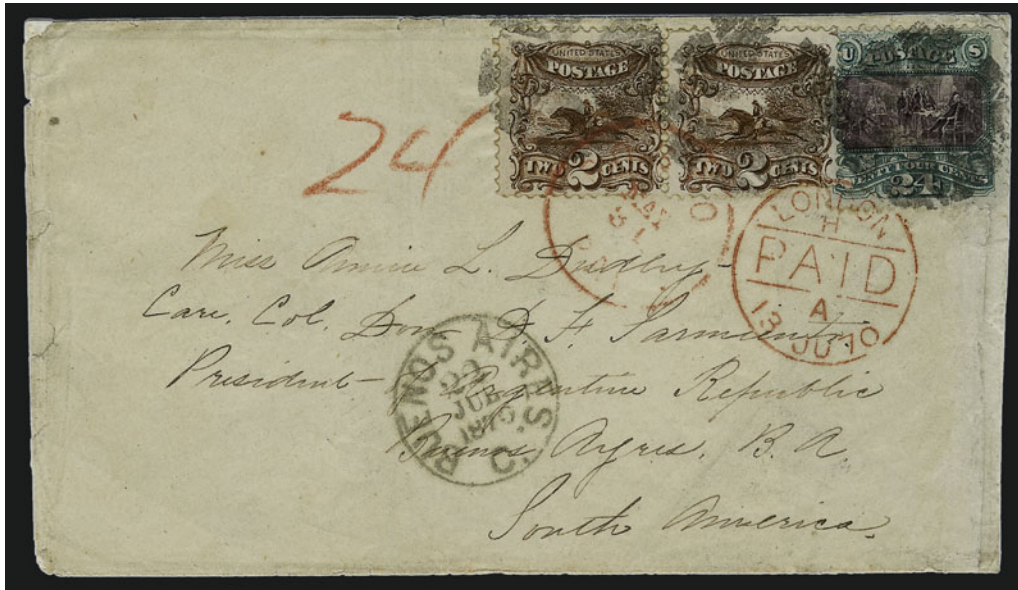 UNITED STATES POSTAGE TWO 2 CENTS
UNITED STATES POSTAGE TWO 2 CENTS
U POSTAGE S
TWENTY FOUR CENTS
24
24
LONDON
H
PAID
A
13 JU 70
Miss Annie L. Dudley
Care, Col. Don D. F. Sarmiento
President Argentine Republic
Buenos Ayres, B. A.
South America.
BUENOS AIRES
22
JUL
1870
C.